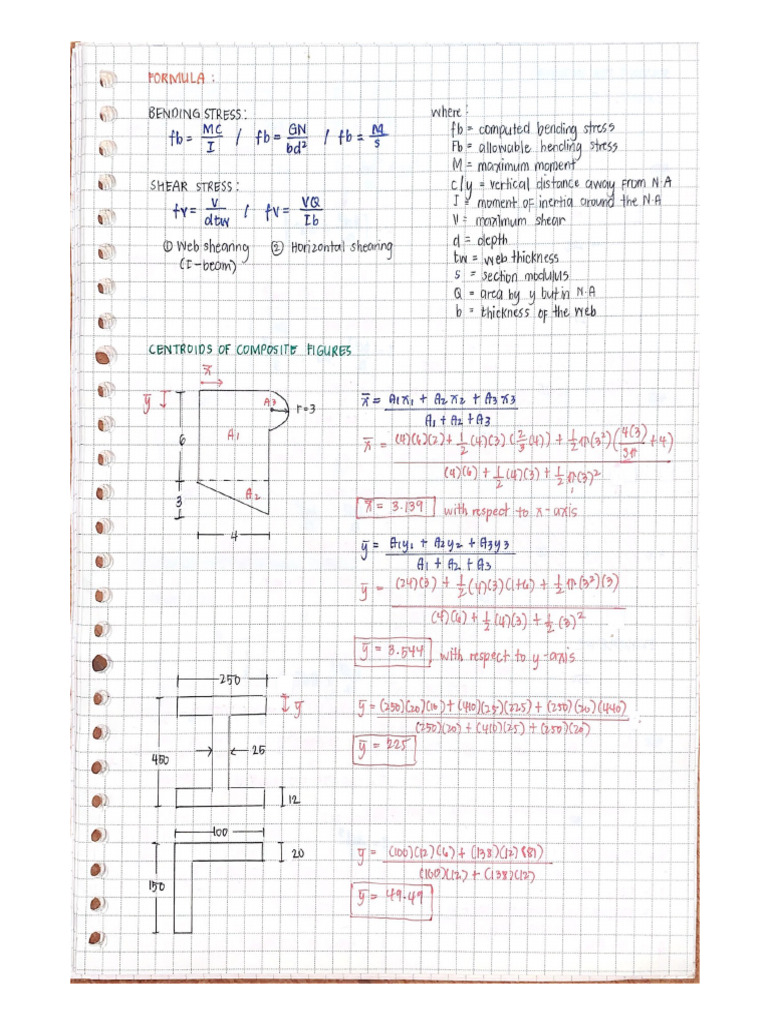 FORMULA:
BENDING STRESS:
fb = MC/I / fb = GN/bd² / fb = M/s
SHEAR STRESS:
fv = V/dtw / fv = VQ/Ib
① Web shearing ② Horizontal shearing
(I-beam)
where:
fb = computed bending stress
Fb = allowable bending stress
M = maximum moment
c/y = vertical distance away from N.A
I = moment of inertia around the N.A
V = maximum shear
d = depth
tw = web thickness
s = section modulus
Q = area by y but in N.A
b = thickness of the web
CENTROIDS OF COMPOSITE FIGURES
x̅
y̅
A3
r=3
A1
6
A2
3
4
x̅ = A1x1 + A2x2 + A3x3
A1 + A2 + A3
x̅ = (4)(6)(2) + 1/2 (4)(3)(2/3(4)) + 1/2 π(3²)(4(3)/3π + 4)
(4)(6) + 1/2 (4)(3) + 1/2 π(3)²
x̅ = 3.139 with respect to x-axis
y̅ = A1y1 + A2y2 + A3y3
A1 + A2 + A3
y̅ = (24)(3) + 1/2 (4)(3)(1+6) + 1/2 π(3²)(3)
(4)(6) + 1/2 (4)(3) + 1/2 (3)²
y̅ = 3.544 with respect to y-axis
250
y̅
450
25
12
y̅ = (250)(20)(10) + (410)(25)(225) + (250)(20)(440)
(250)(20) + (410)(25) + (250)(20)
y̅ = 225
100
20
150
y̅ = (100)(12)(6) + (138)(12)(81)
(100)(12) + (138)(12)
y̅ = 49.49